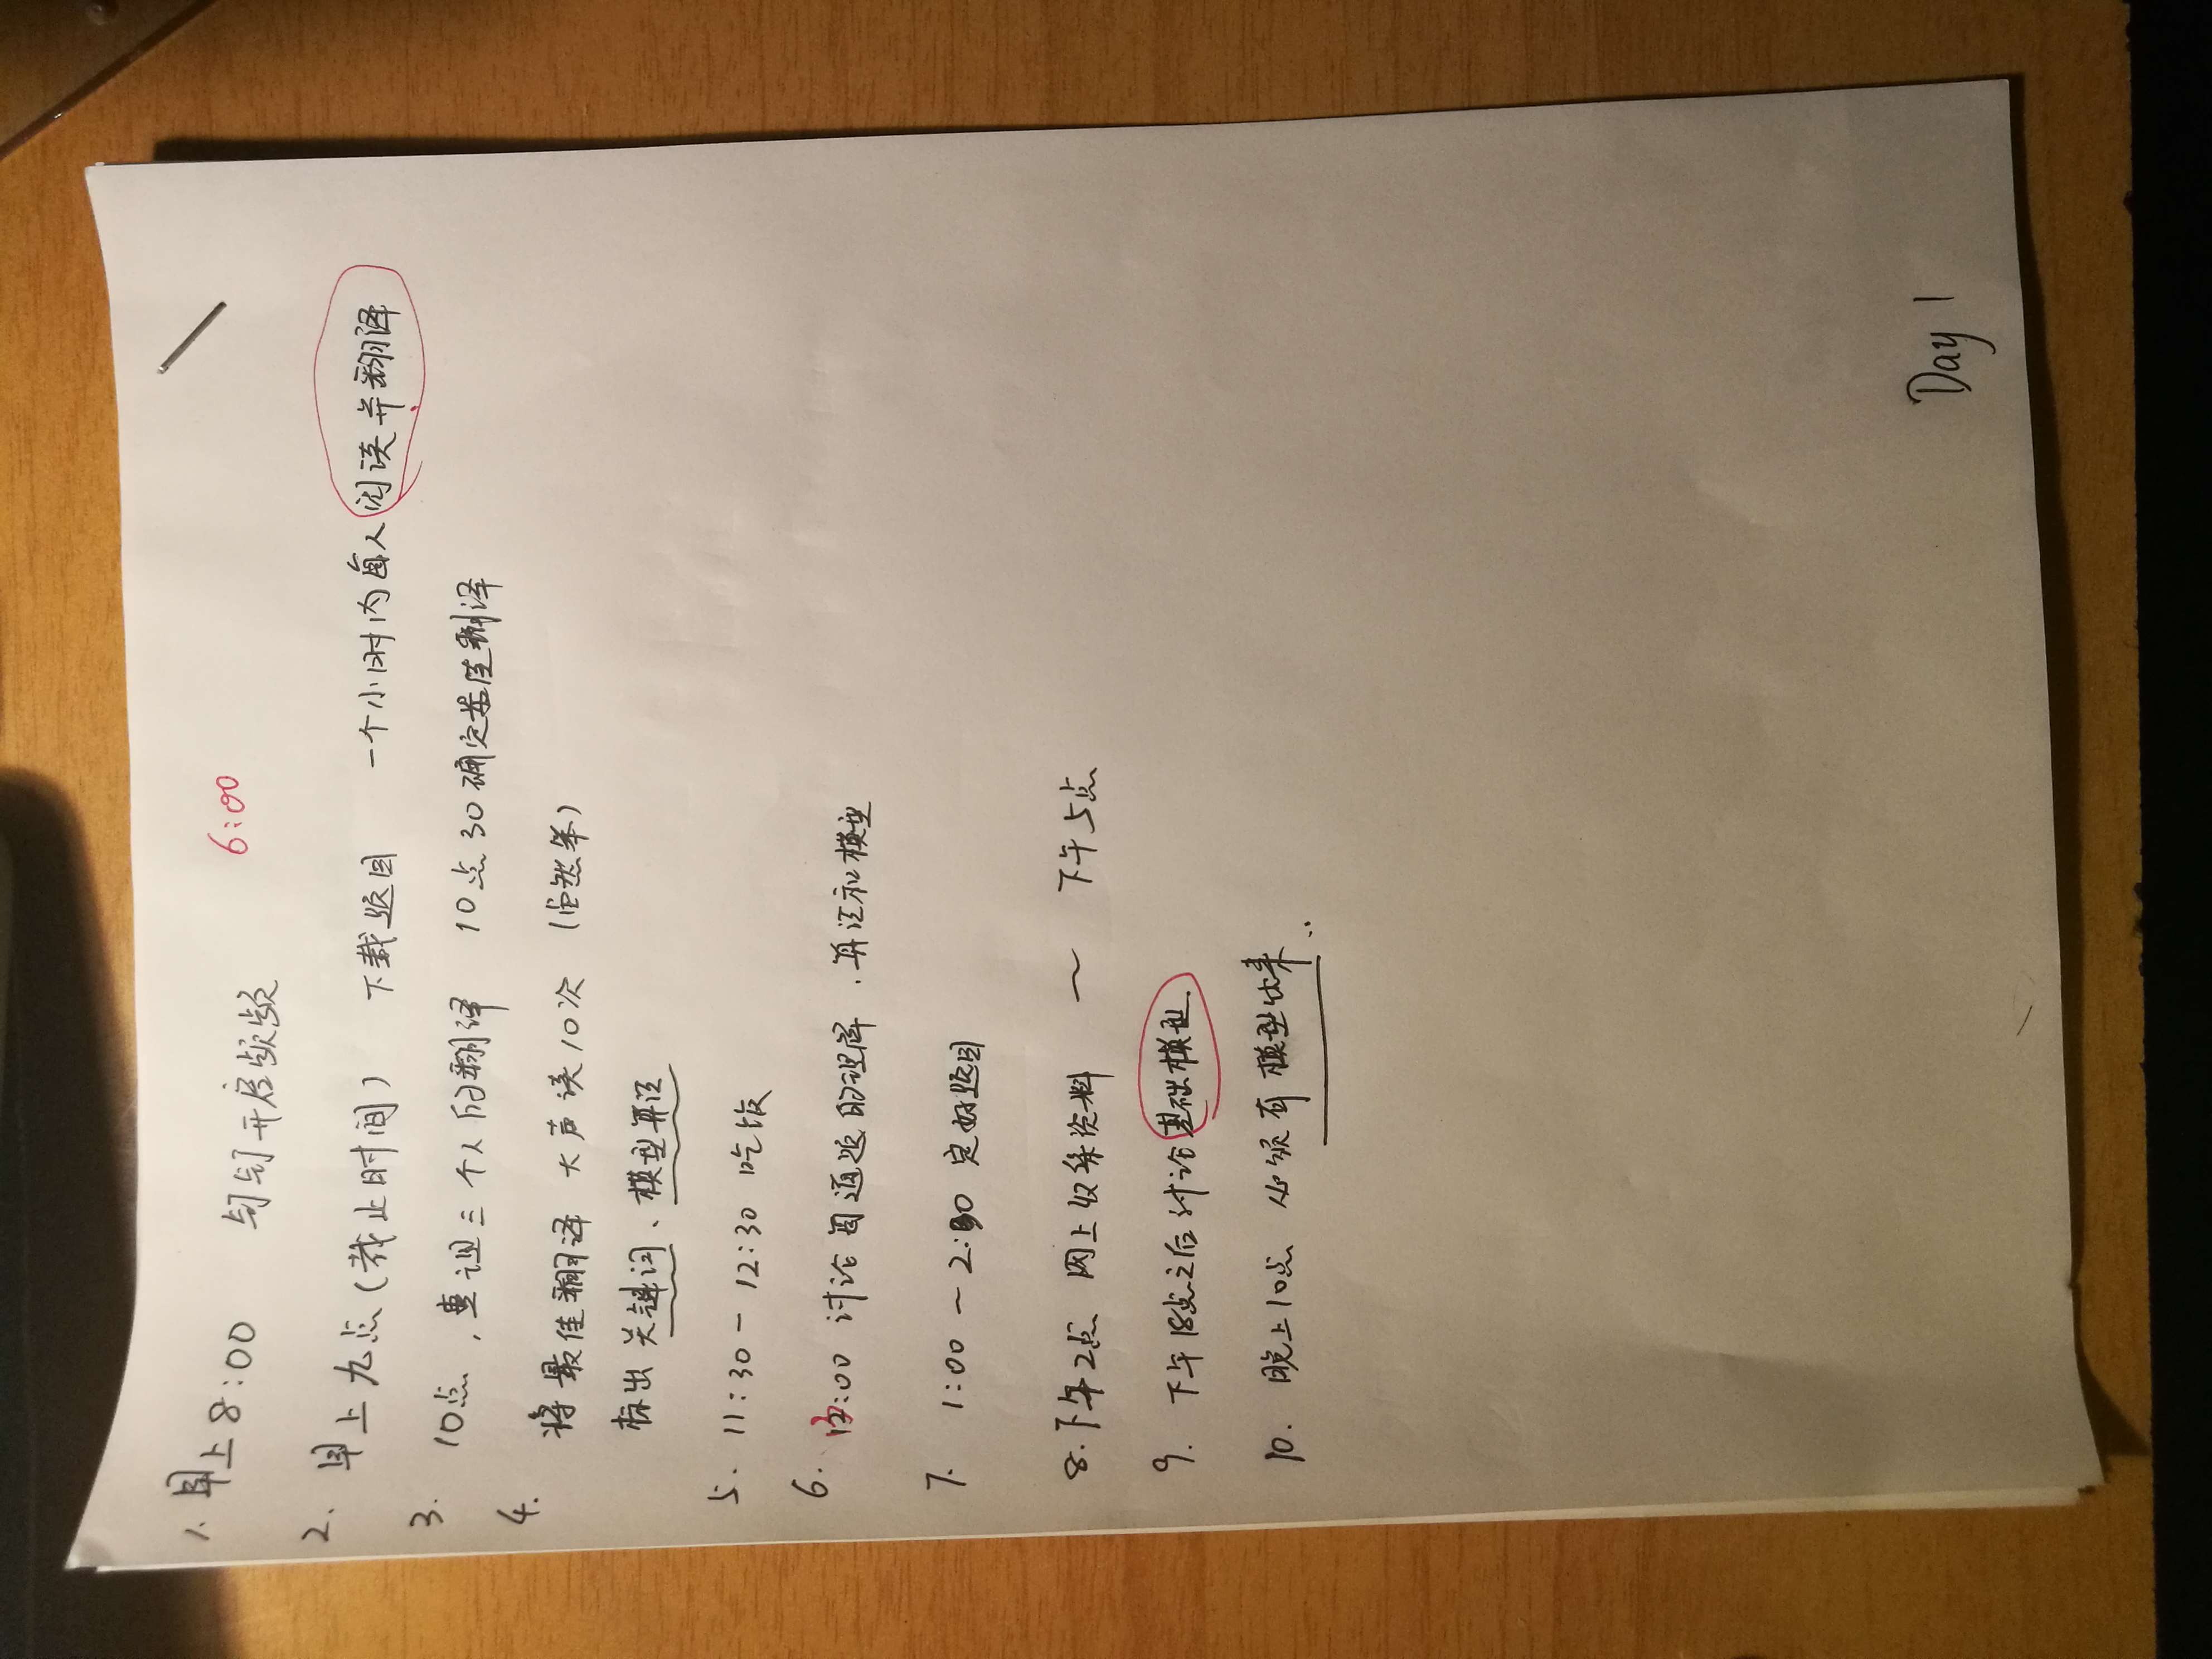 1. 早上8:00 钉钉开启频频 6:00
2. 早上九点(截止时间) 下载题目 一个小时内每人阅读并翻译
3. 10点,查证三个人的翻译 10点30确定最佳翻译
4. 将最佳翻译大声读10次 (虽然笨)
标出关键词、模型算法
5. 11:30-12:30 吃饭
6. 13:00 讨论每道题的理解、算法和模型
7. 1:00~2:30 定好题目
8. 下午2点 网上收集资料 ~ 下午5点
9. 下午18点之后讨论基础模型.
10. 晚上10点 必须有模型出来..
Day 1